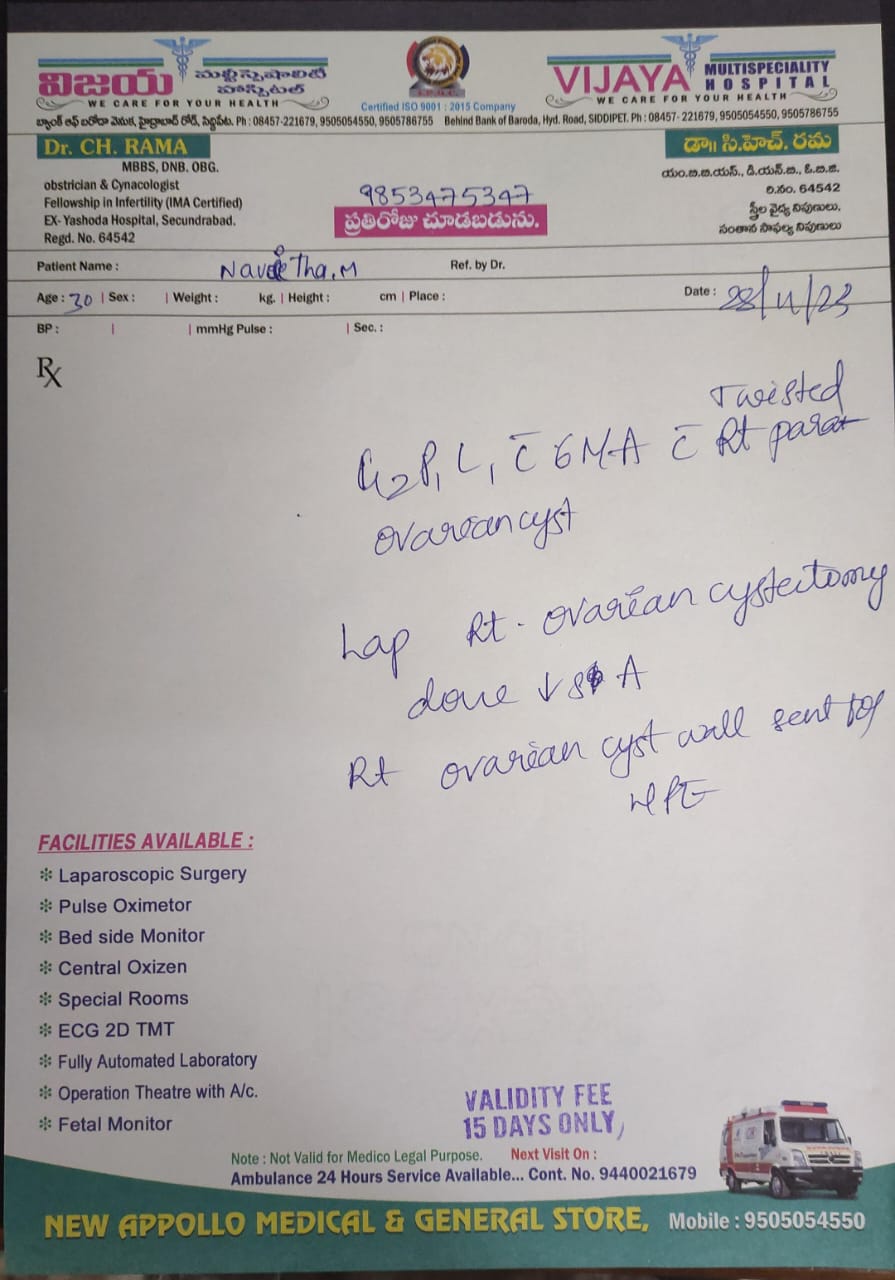 విజయ మల్టీస్పెషాలిటీ హాస్పిటల్
WE CARE FOR YOUR HEALTH
Certified ISO 9001 : 2015 Company
VIJAYA MULTISPECIALITY HOSPITAL
WE CARE FOR YOUR HEALTH
బ్యాంక్ ఆఫ్ బరోడా వెనుక, హైద్రాబాద్ రోడ్, సిద్దిపేట. Ph : 08457-221679, 9505054550, 9505786755 Behind Bank of Baroda, Hyd. Road, SIDDIPET. Ph : 08457- 221679, 9505054550, 9505786755
Dr. CH. RAMA
MBBS, DNB. OBG.
obstrician & Cynacologist
Fellowship in Infertility (IMA Certified)
EX- Yashoda Hospital, Secundrabad.
Regd. No. 64542
9853475347
ప్రతిరోజు చూడబడును.
డా॥ సి.హెచ్. రమ
యం.బి.బి.యస్., డి.యన్.బి., ఓ.బి.జి.
రి.నం. 64542
స్త్రీల వైద్య నిపుణులు,
సంతాన సాఫల్య నిపుణులు
Patient Name : Tha.M Ref. by Dr.
Age : 30 | Sex : | Weight : kg. | Height : cm | Place : Date : 28/11/23
BP : | | mmHg Pulse : | Sec. :
Rx
Twisted
G2P1L1 c̄ 6MA c̄ Rt para
ovarian cyst
Lap Rt. ovarian cystectomy
done ↓ S A
Rt ovarian cyst wall sent for
HPE
FACILITIES AVAILABLE :
❇ Laparoscopic Surgery
❇ Pulse Oximetor
❇ Bed side Monitor
❇ Central Oxizen
❇ Special Rooms
❇ ECG 2D TMT
❇ Fully Automated Laboratory
❇ Operation Theatre with A/c.
❇ Fetal Monitor
VALIDITY FEE
15 DAYS ONLY
Note : Not Valid for Medico Legal Purpose. Next Visit On :
Ambulance 24 Hours Service Available... Cont. No. 9440021679
NEW APPOLLO MEDICAL & GENERAL STORE, Mobile : 9505054550